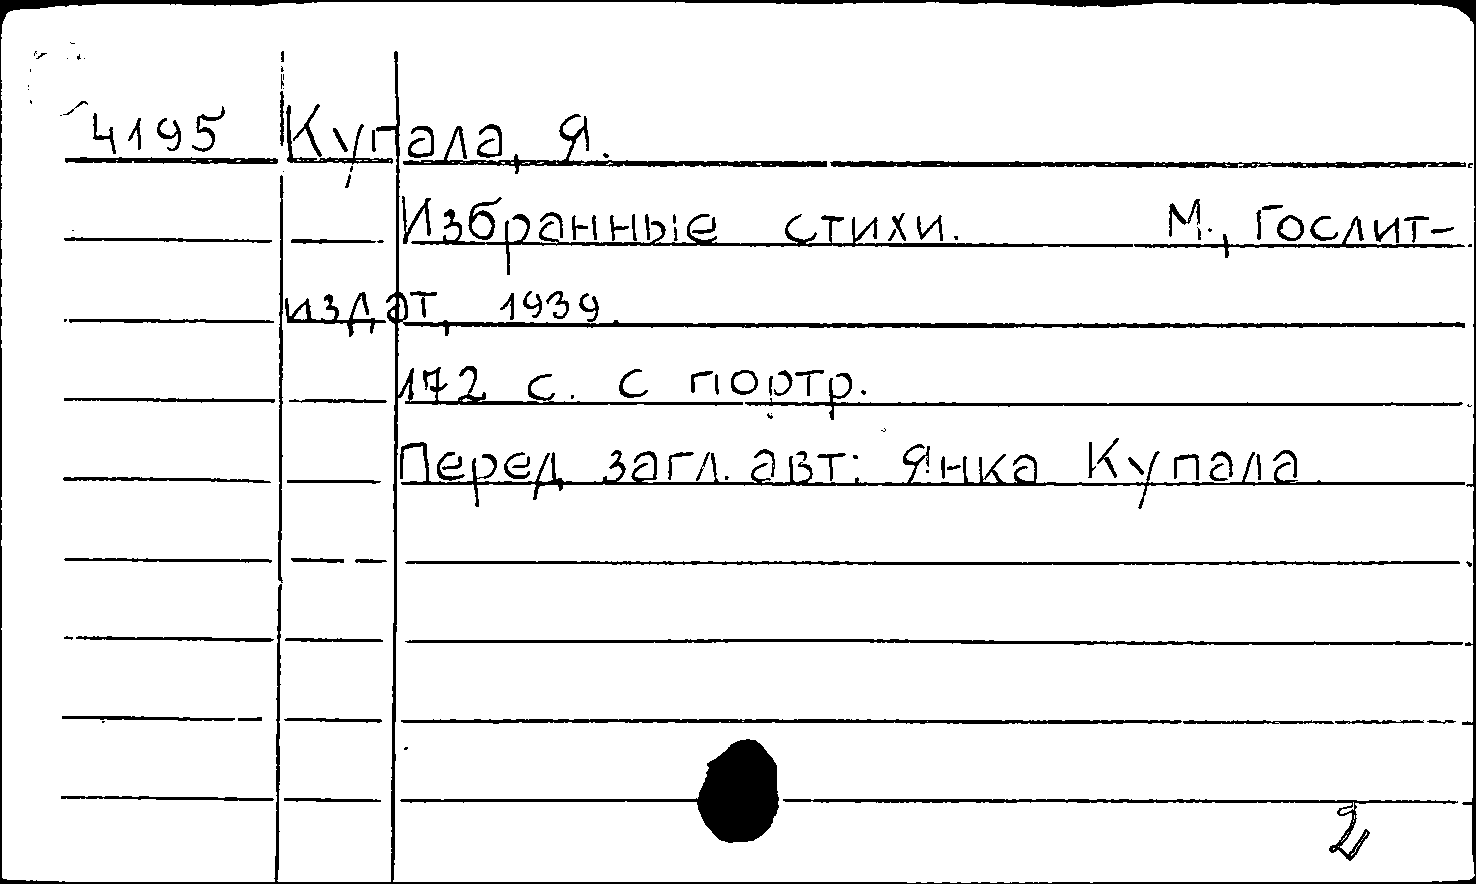 4195 Купала, Я.
Избранные стихи. М., Гослит-
издат, 1939.
172 с. с портр.
Перед загл. авт: Янка Купала.
2